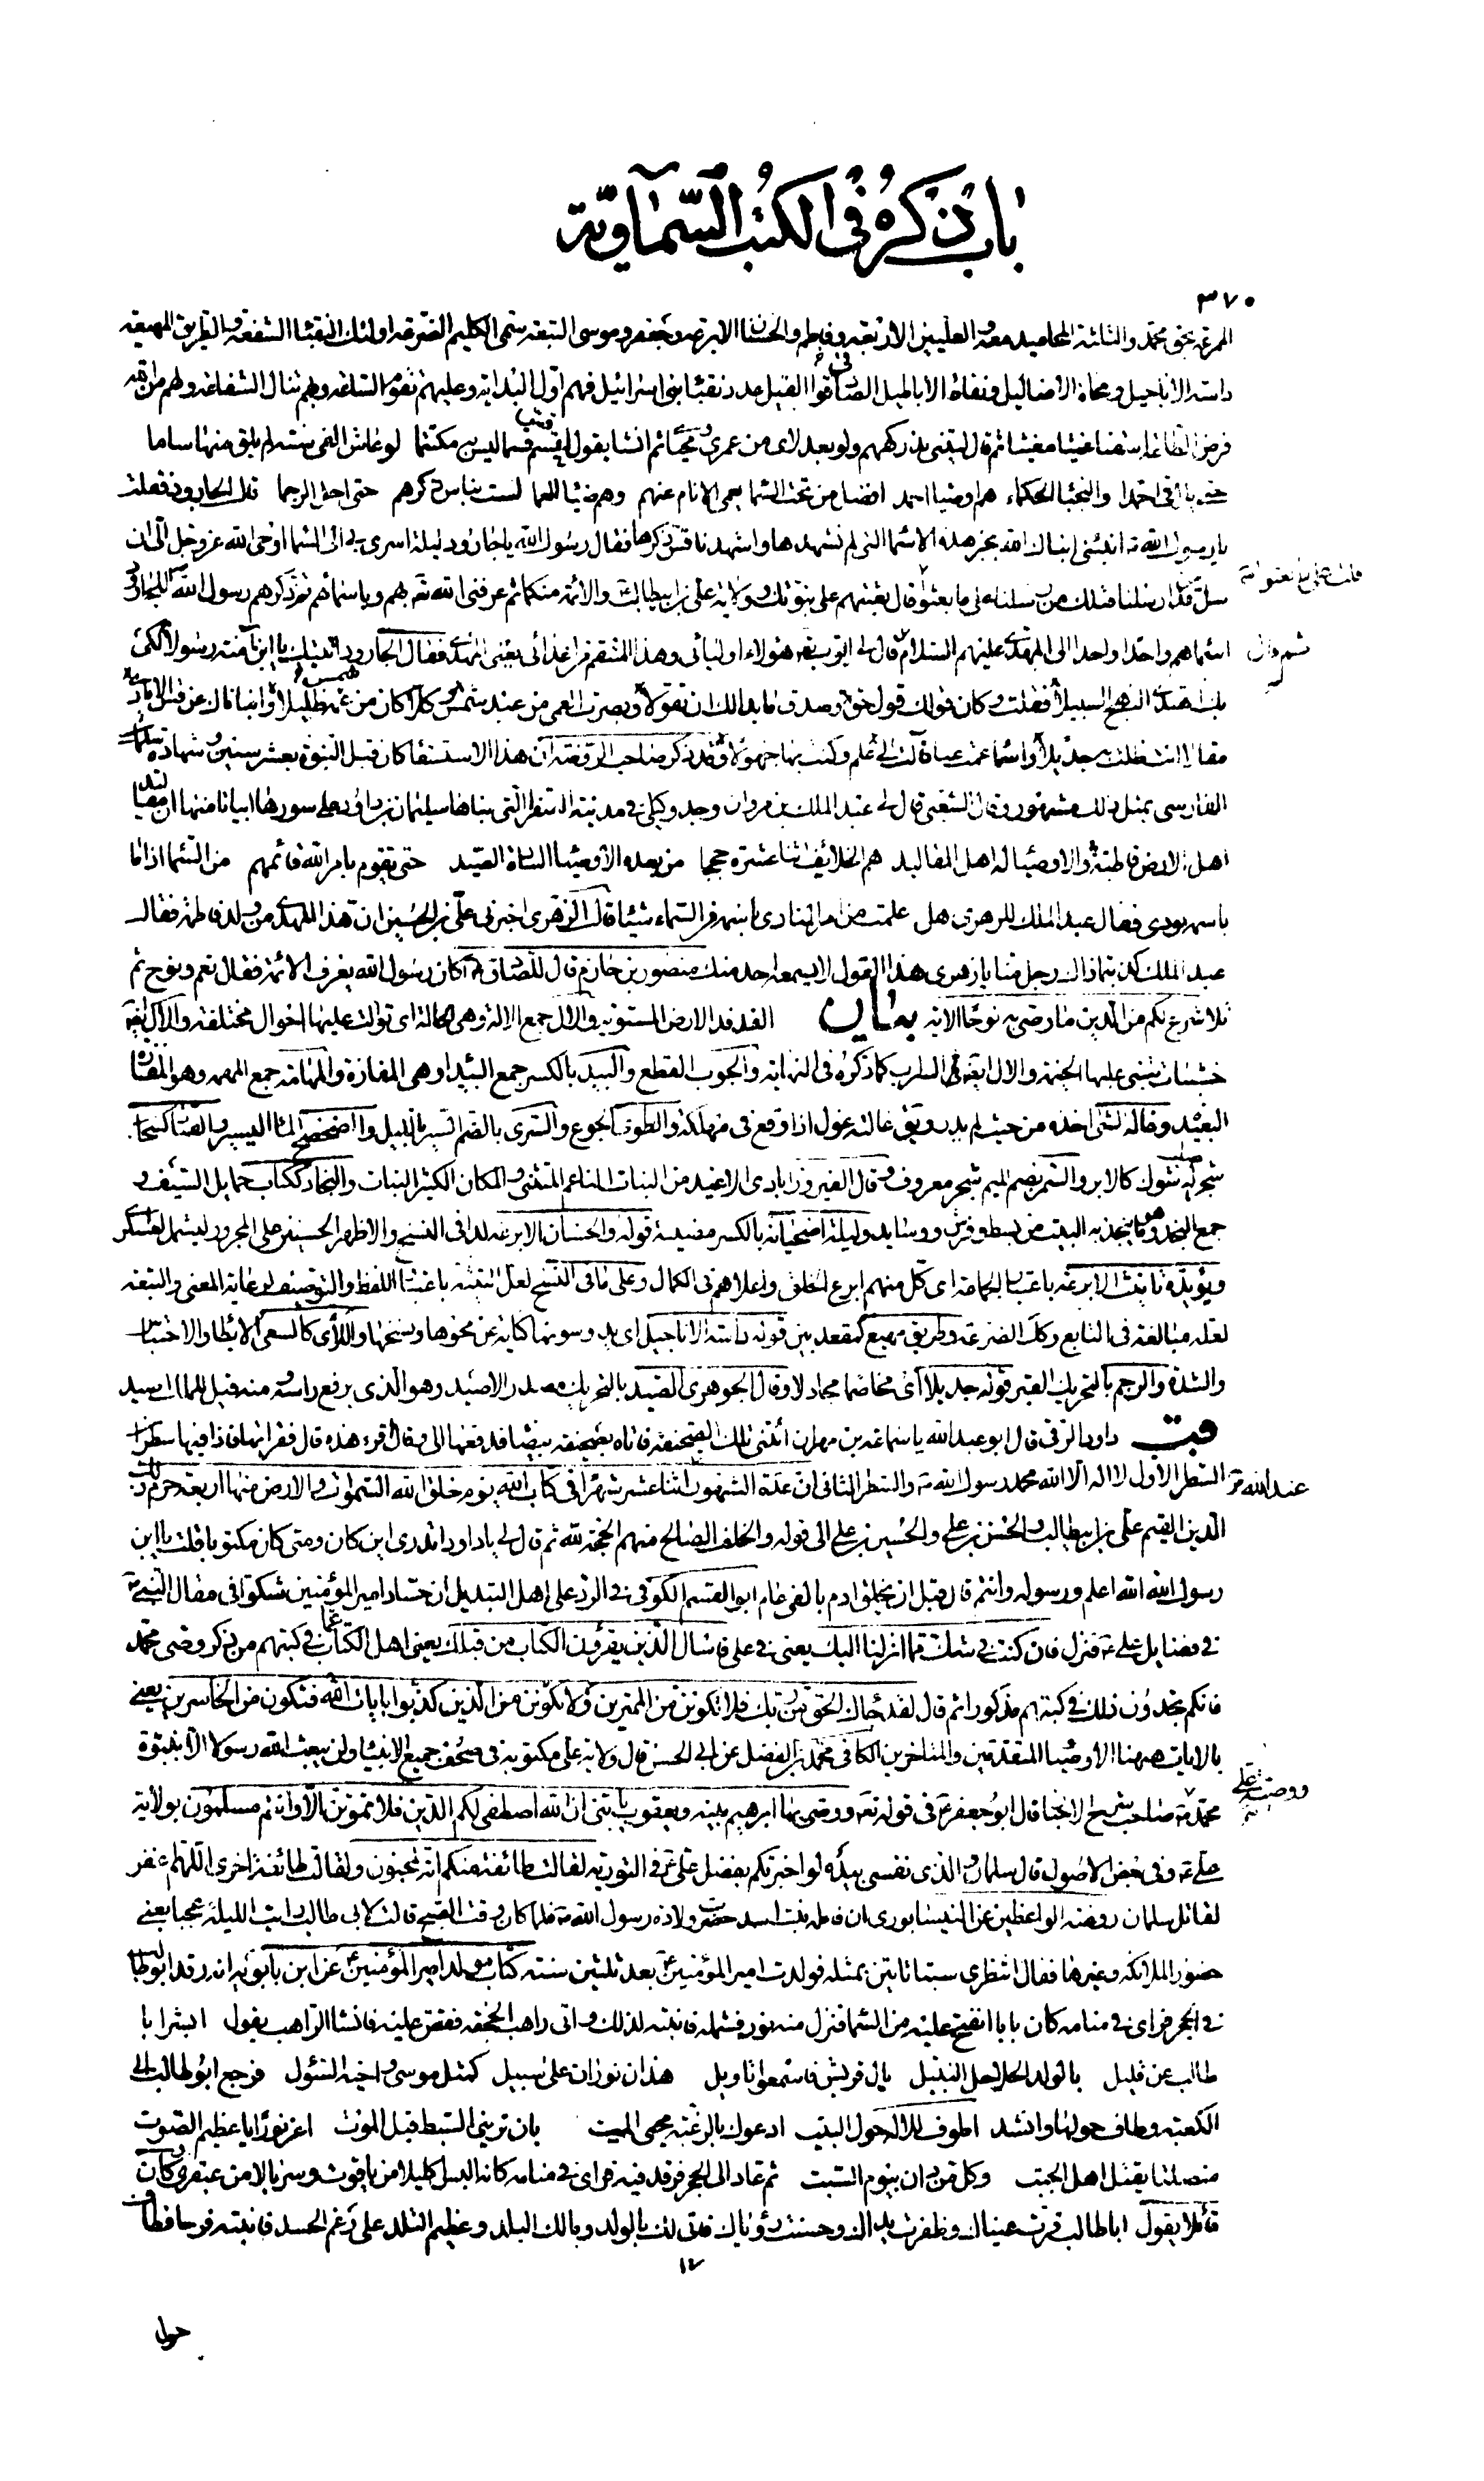 باب ذكره في الكتب السماوية
٣٧٠
الممرعة بحق محمد والثلثة المحاميد معه والعليين الاربعة وفاطم والحسنان الابرعة وجعفر وموسى التبعة سمى الكليم الضرعة اولئك النقباء الشفعة والطريق المهيعة
داسة الاناجيل ومحاة الاضاليل ونفاة الاباطيل الصادقوا القيل عدد نقباء بني اسرائيل فهم اول البداية وعليهم تقوم الساعة وبهم تنال الشفاعة ولهم من الله
فرض الطاعة اسقنا غيثا مغيثا ثم قال ليتني مدركهم ولو بعد لاى من عمرى ومحياى ثم انشا يقول اقسم قس قسما ليس به مكتتما لو عاش الفي سنة لم يلق منها ساما
حتى يلاقى احمدا والنجباء الحكماء هم اوصياء احمد افضل من تحت السما يعمى الانام عنهم وهم ضياء للعما لست بناس ذكرهم حتى احل الرجما قال الجارود فقلت
يا رسول الله ص انبئنى انباك الله بخبر هذه الاسماء التى لم نشهدها واشهدنا قس ذكرها فقال رسول الله يا جارود ليلة اسرى بى الى السماء اوحى الله عز وجل الى ان
سل من قد ارسلنا قبلك من رسلنا على ما بعثوا قال بعثتهم على نبوتك وولاية على بن ابيطالب والائمة منكما ثم عرفنى الله تع بهم وباسمائهم ثم ذكرهم رسول الله للجارود
قلت على ما بعثوا
اسمائهم واحدا واحدا الى المهدى عليهم السلام قال لى الرب تع هؤلاء اوليائى وهذا المنتقم من اعدائى يعنى المهدى فقال الجارود اتيتك يا ابن امنة رسولا لكى
بك اهتدى النهج السبيلا فقلت وكان قولك قول حق وصدق ما بدا لك ان تقولا وبصرت العمى من عبد شمس وكلا كان من عمه ظليلا وانباناك عن قس الايادى
مقالا انت ظلت به جديلا واسماء عمت عنا فآلت الى علم وكنت بها جهولا وقد ذكر صاحب الروضة ان هذا الاستسقا كان قبل النبوة بعشر سنين وشهادة سلمان
الفارسى بمثل ذلك مشهور وقال الشعبى قال لى عبد الملك بن مروان وجد وكيلى فى مدينة الصفر التى بناها سليمان بن داود على سورها ابياتا منها ان مقاليد
اهل الارض قاطبة والاوصياء له اهل المقاليد هم الخلائف اثنا عشرة حججا من بعده الاوصياء السادة الصيد حتى يقوم بامر الله قائمهم من السماء اذا ما
باسمه نودى فقال عبد الملك للزهرى هل علمت من امر المنادى باسمه من السماء شيئا قال الزهرى اخبرنى على بن الحسين ان هذا المهدى من ولد فاطمة فقال
عبد الملك كذبتما ذاك رجل منا يا زهرى هذا القول لا يسمعه احد منك منصور بن حازم قال للصادق ع اكان رسول الله يعرف الائمة فقال نعم ونوح ثم
تلا شرع لكم من الدين ما وصى به نوحا الاية بيان الفدفد الارض المستوية والال جمع الالة وهى الحالة اى توالت عليها احوال مختلفة والال ايضا
خشبات تبنى عليها الخيمة والال ايضا السراب كما ذكره فى النهاية والجوب القطع والبيد بالكسر جمع البيداء وهى المفازة والمهامه جمع المهمه وهو المفازة
البعيد وغاله الشى اخذه من حيث لم يدر ويق غالته غول اذا وقع فى مهلكة والطوى الجوع والسرى بالضم السير بالليل والضحضح الماء اليسير والقتاد كسحاب
شجر صلب له شوك كالابر والسمر بضم الميم شجر معروف وقال الفيروزابادى الاغيد من النبات الناعم المتثنى والمكان الكثير النبات والنجاد ككتاب حمايل السيف و
جمع النجد وهو ما ينجد به البيت من بسط وفرش ووسايد وليلة اضحيانة بالكسر مضيئة قوله والحسنان الابرعة كذا فى النسخ والاظهر الحسنين على المجرور ليشمل العسكر
ويؤيده تانيث الابرعة باعتبار الجماعة اى كل منهم ابرع الخلق واعلاهم فى الكمال وعلى ما فى النسخ لعل التثنية باعتبار اللفظ والتوصيف لرعاية المعنى والتبعة
لعله مبالغة فى التابع وكذا الضرعة وطريق مهيع كمقعد بين قوله داسة الاناجيل اى يدوسونها كناية عن محوها ونسخها واللأى كالسعى الابطاء والاحتباس
والشدة والرجم بالتحريك القبر قوله جديلا اى مخاصما مجادلا وقال الجوهرى الصيد بالتحريك مصدر الاصيد وهو الذى يرفع راسه ومنه قيل للملك اصيد
قب داود الرقى قال ابو عبد الله يا سماعة بن مهران ائتنى تلك الصحيفة فاتاه بصحيفة بيضاء فدفعها الى وقال اقرء هذه قال فقراتها فاذا فيها سطران
السطر الاول لا اله الا الله محمد رسول الله ص والسطر الثانى ان عدة الشهور عند الله اثنا عشر شهرا فى كتاب الله يوم خلق الله السموات والارض منها اربعة حرم ذلك
الدين القيم على بن ابيطالب والحسن بن على والحسين بن على الى قوله والخلف الصالح منهم الحجة لله ثم قال لى يا داود اتدرى اين كان ومتى كان مكتوبا قلت يا ابن
رسول الله الله اعلم ورسوله وانتم قال قبل ان يخلق ادم بالفى عام ابو القسم الكوفى فى الرد على اهل التبديل ان حساد امير المؤمنين شكوا فى مقال النبى ص
فى فضايل على ع فنزل فان كنت فى شك مما انزلنا اليك يعنى فى على فاسال الذين يقرؤن الكتاب من قبلك يعنى اهل الكتاب عما فى كتبهم من ذكر وصى محمد
فانكم تجدون ذلك فى كتبهم مذكورا ثم قال لقد جاءك الحق من ربك فلا تكونن من الممترين ولا تكونن من الذين كذبوا بايات الله فتكون من الخاسرين يعنى
بالايات ههنا الاوصياء المتقدمين والمتاخرين الكافى محمد بن الفضل عن ابى الحسن قال ولاية على مكتوبة فى صحف جميع الانبياء ولن يبعث الله رسولا الا بنبوة
محمد ص ووصية على ع صاحب شرح الاخبار قال ابو جعفر ع فى قوله تع ووصى بها ابرهيم بنيه ويعقوب يا بنى ان الله اصطفى لكم الدين فلا تموتن الا وانتم مسلمون بولاية
على ع وفى بعض الاصول قال سلمان والذى نفسى بيده لو اخبرتكم بفضل على ع فى التورية لقالت طائفة منكم انه لمجنون ولقالت طائفة اخرى اللهم اغفر
لقاتل سلمان روضة الواعظين عن النيسابورى ان فاطمة بنت اسد حضرت ولادة رسول الله ص فلما كان وقت الصبح قالت لابى طالب رايت الليلة عجبا يعنى
حضور الملائكة وغيرها فقال انتظرى سبتا تاتين بمثله فولدت امير المؤمنين ع بعد ثلثين سنة كتاب مولد امير المؤمنين ع عن ابن بابويه انه رقد ابو طالب
فى الحجر فراى فى منامه كان بابا انفتح عليه من السماء فنزل منه نور فشمله فانتبه لذلك واتى راهب الجحفة فقص عليه فانشا الراهب يقول ابشر ابا
طالب عن قليل بالولد الحلاحل النبيل يال قريش فاسمعوا تاويلى هذان نوران على سبيل كمثل موسى واخيه السئول فرجع ابو طالب الى
الكعبة وطاف حولها وانشد اطوف للاله حول البيت ادعوك بالرغبة محيى الميت بان ترينى السبط قبل الموت اغر نورا يا عظيم الصوت
منصلتا يقتل اهل الجبت وكل من دان بيوم السبت ثم عاد الى الحجر فرقد فيه فراى فى منامه كانه البس اكليلا من ياقوت وسربالا من عبقرى وكان
قائلا يقول ابا طالب قرت عيناك وظفرت يداك وحسنت رؤياك فاتى لك بالولد ومالك البلد وعظيم التلد على رغم الحسد فانتبه فرحا فطاف
١٢
حول